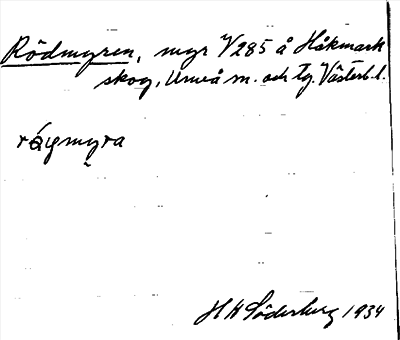 Rödmyren, myr V285 å Håkmark
skog, Umeå m. och tg. Västerb. l.
rǿgmyra
H H Söderberg 1934